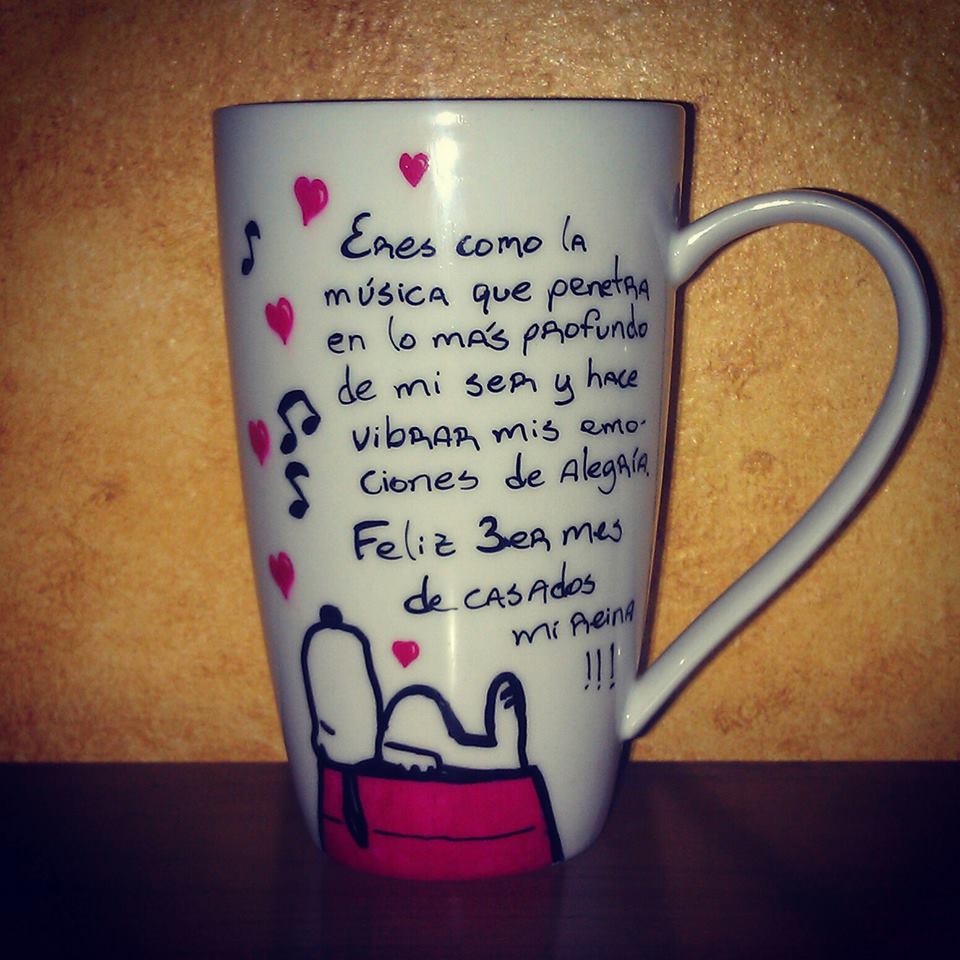 Eres como la
música que penetra
en lo más profundo
de mi ser y hace
vibrar mis emo-
ciones de alegría.
Feliz 3er mes
de casados
mi reina
!!!